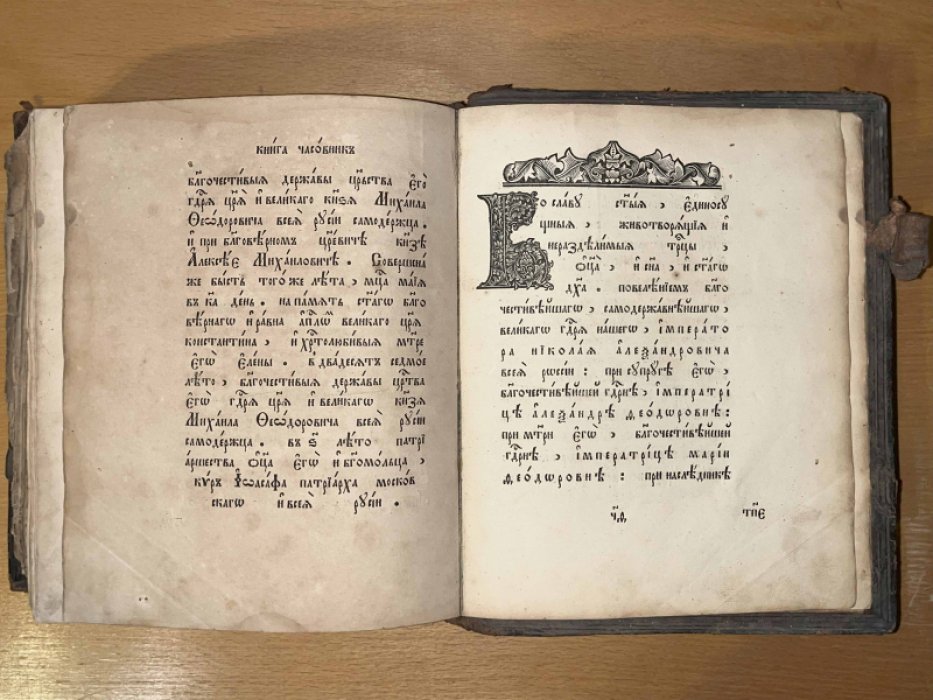 кни́га часо́вникъ
бл҃гочести́выя держа́вы црⷭ҇тва є҆гѡ̀
гдⷭ҇ря цр҃я̀ и҆ вели́каго кн҃зя Миха́ила
Ѳео́доровича всея̀ рꙋсі́и самоде́ржца .
и҆ при бл҃гове́рномъ цр҃е́вичѣ кн҃зѣ
А҆леѯѣ́є Миха́иловичѣ . Соверше́на
же бы́сть того́же лѣ́та , мцⷭ҇а ма́ія
въ к҃а де́нь . на па́мять ст҃а́гѡ бл҃го
вѣ́рнагѡ и҆ ра́вна а҆пⷭ҇лѡмъ вели́каго цр҃я̀
константи́на , и҆ хрⷭ҇толюби́выя мт҃ре
є҆гѡ̀ Є҆ле́ны . в два́десятъ седмо́е
лѣ́то , бл҃гочести́выя держа́вы црⷭ҇тва
є҆гѡ̀ гдⷭ҇ря цр҃я̀ и҆ вели́кагѡ кн҃зя
Миха́ила Ѳео́доровича всея̀ рꙋсі́и
самоде́ржца . въ ѕ҃ лѣ́то патрі
а́ршества ѻ҆ц҃а̀ є҆гѡ̀ и҆ бг҃омо́льца ,
кѵ́ръ І҆ѡаса́фа патрїа́рха москов
скагѡ и҆ всея̀ рꙋсі́и .
Во сла́вꙋ ст҃ы́я , є҆диносꙋ
щныя , животворя́щія и҆
нераздѣли́мыя трⷪ҇цы ,
ѻ҆ц҃а̀ , и҆ сн҃а , и҆ ст҃а́гѡ
дх҃а . повелѣ́ніемъ бл҃го
чести́вѣйшагѡ , самодержа́внѣйшагѡ ,
вели́кагѡ гдⷭ҇ря на́шегѡ , і҆мпера́то
ра нікола́я а҆леѯа́ндровича
всея̀ рѡссі́и : при сꙋпрꙋ́гѣ є҆гѡ̀ ,
бл҃гочести́вѣйшей гдⷭ҇рнѣ , і҆мператрі́
цѣ а҆леѯа́ндрѣ ѳео́дѡровнѣ :
при мт҃ри є҆гѡ̀ , бл҃гочести́вѣйшей
гдⷭ҇рнѣ , і҆мператрі́цѣ марі́и
ѳео́дѡровнѣ : при наслѣ́дникѣ
тиⷩ҇є